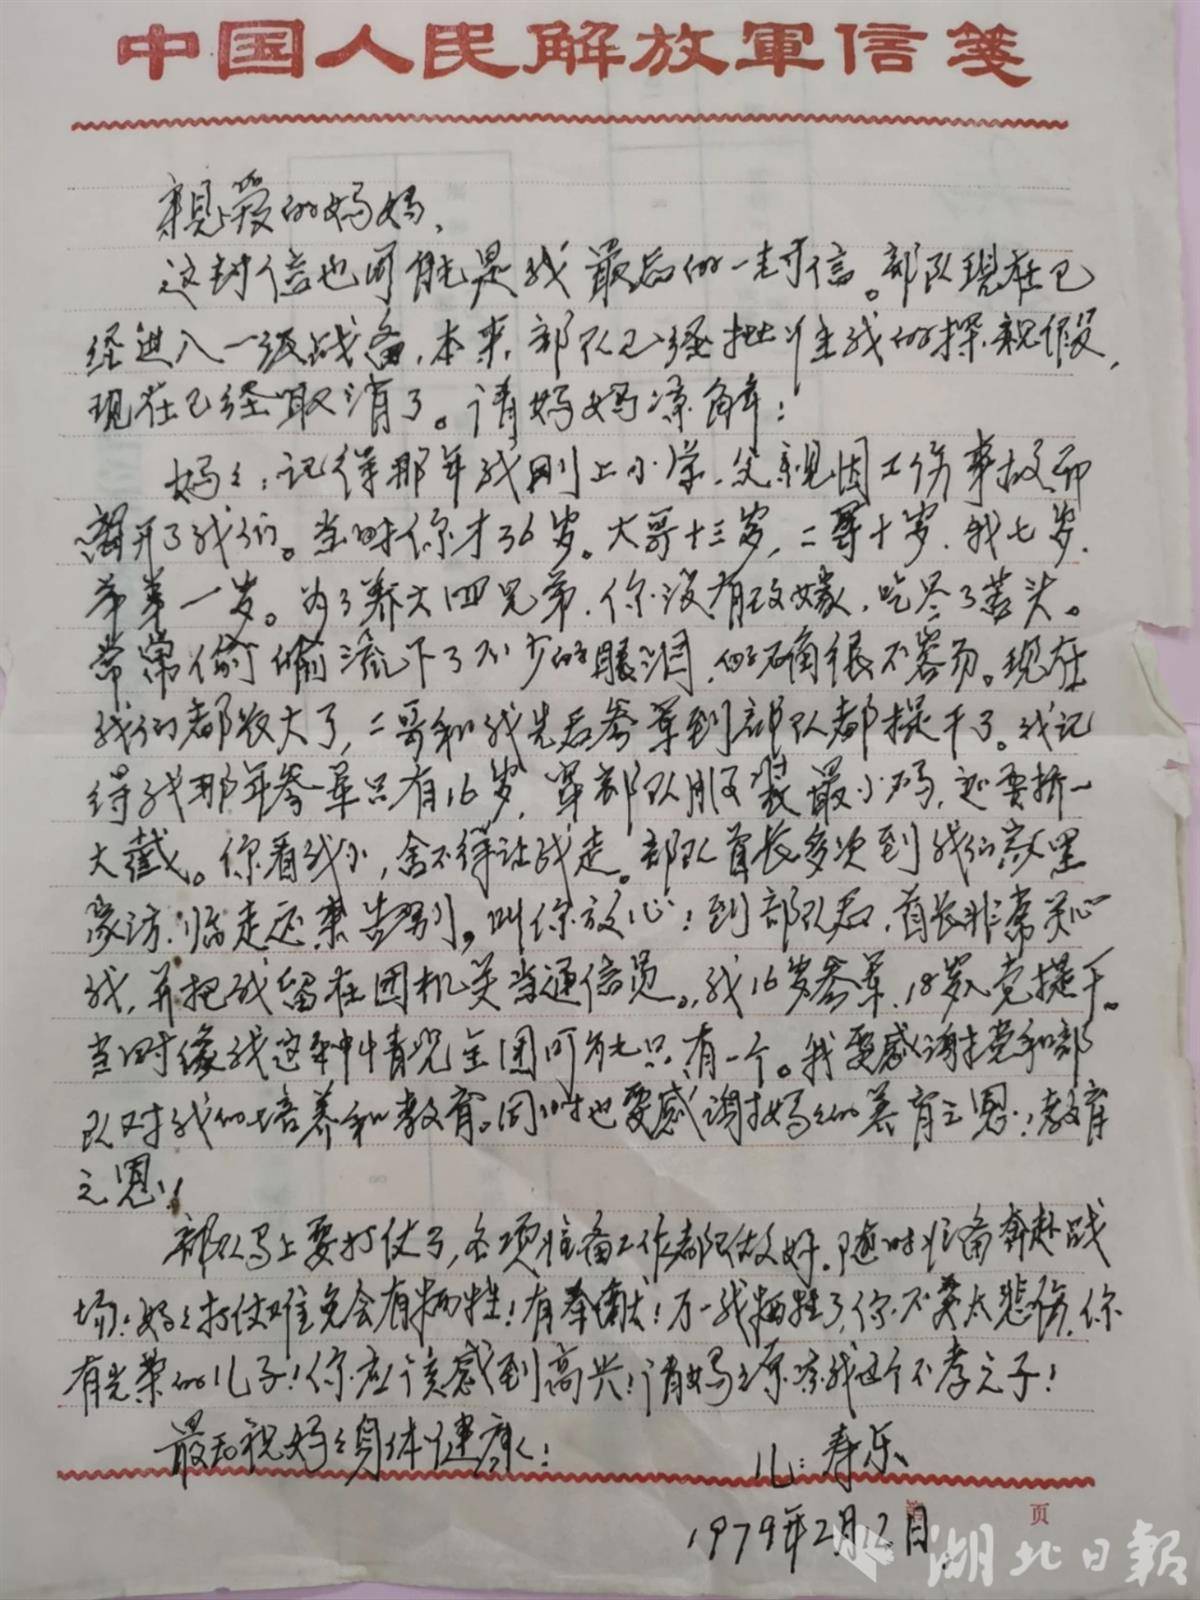 中国人民解放軍信箋
亲爱的妈妈，
这封信也可能是我最后的一封信。部队现在已
经进入一级战备，本来部队已经批准我的探亲假，
现在已经取消了。请妈妈凉解！
妈々：记得那年我刚上小学，父亲因工伤事故而
离开了我们。当时你才36岁。大哥十三岁，二哥十岁，我七岁，
弟弟一岁。为了养大四兄弟，你没有改嫁，吃尽了苦头。
常常偷偷流下了不少的眼泪，的确很不容易。现在
我们都长大了，二哥和我先后参军到部队都提干了。我记
得我那年参军只有16岁，穿部队服装最小码，还要挤一
大截。你看我小，舍不得让我走。部队首长多次到我们家里
家访，临走还来告别，叫你放心！到部队后，首长非常关心
我，并把我留在团机关当通信员。我16岁参军，18岁入党提干。
当时像我这种情况全团可能只有一个。我要感谢党和部
队对我的培养和教育。同时也要感谢妈々的养育之恩！教育
之恩！
部队马上要打仗了，各项准备工作都做好，随时准备奔赴战
场！妈々打仗难免会有牺牲！有奉献！万一我牺牲了，你不要太悲伤，你
有光荣的儿子！你应该感到高兴！请妈々原凉我这个不孝之子！
最后祝妈々身体健康！
儿：寿乐
1979年2月2日
页
湖北日報